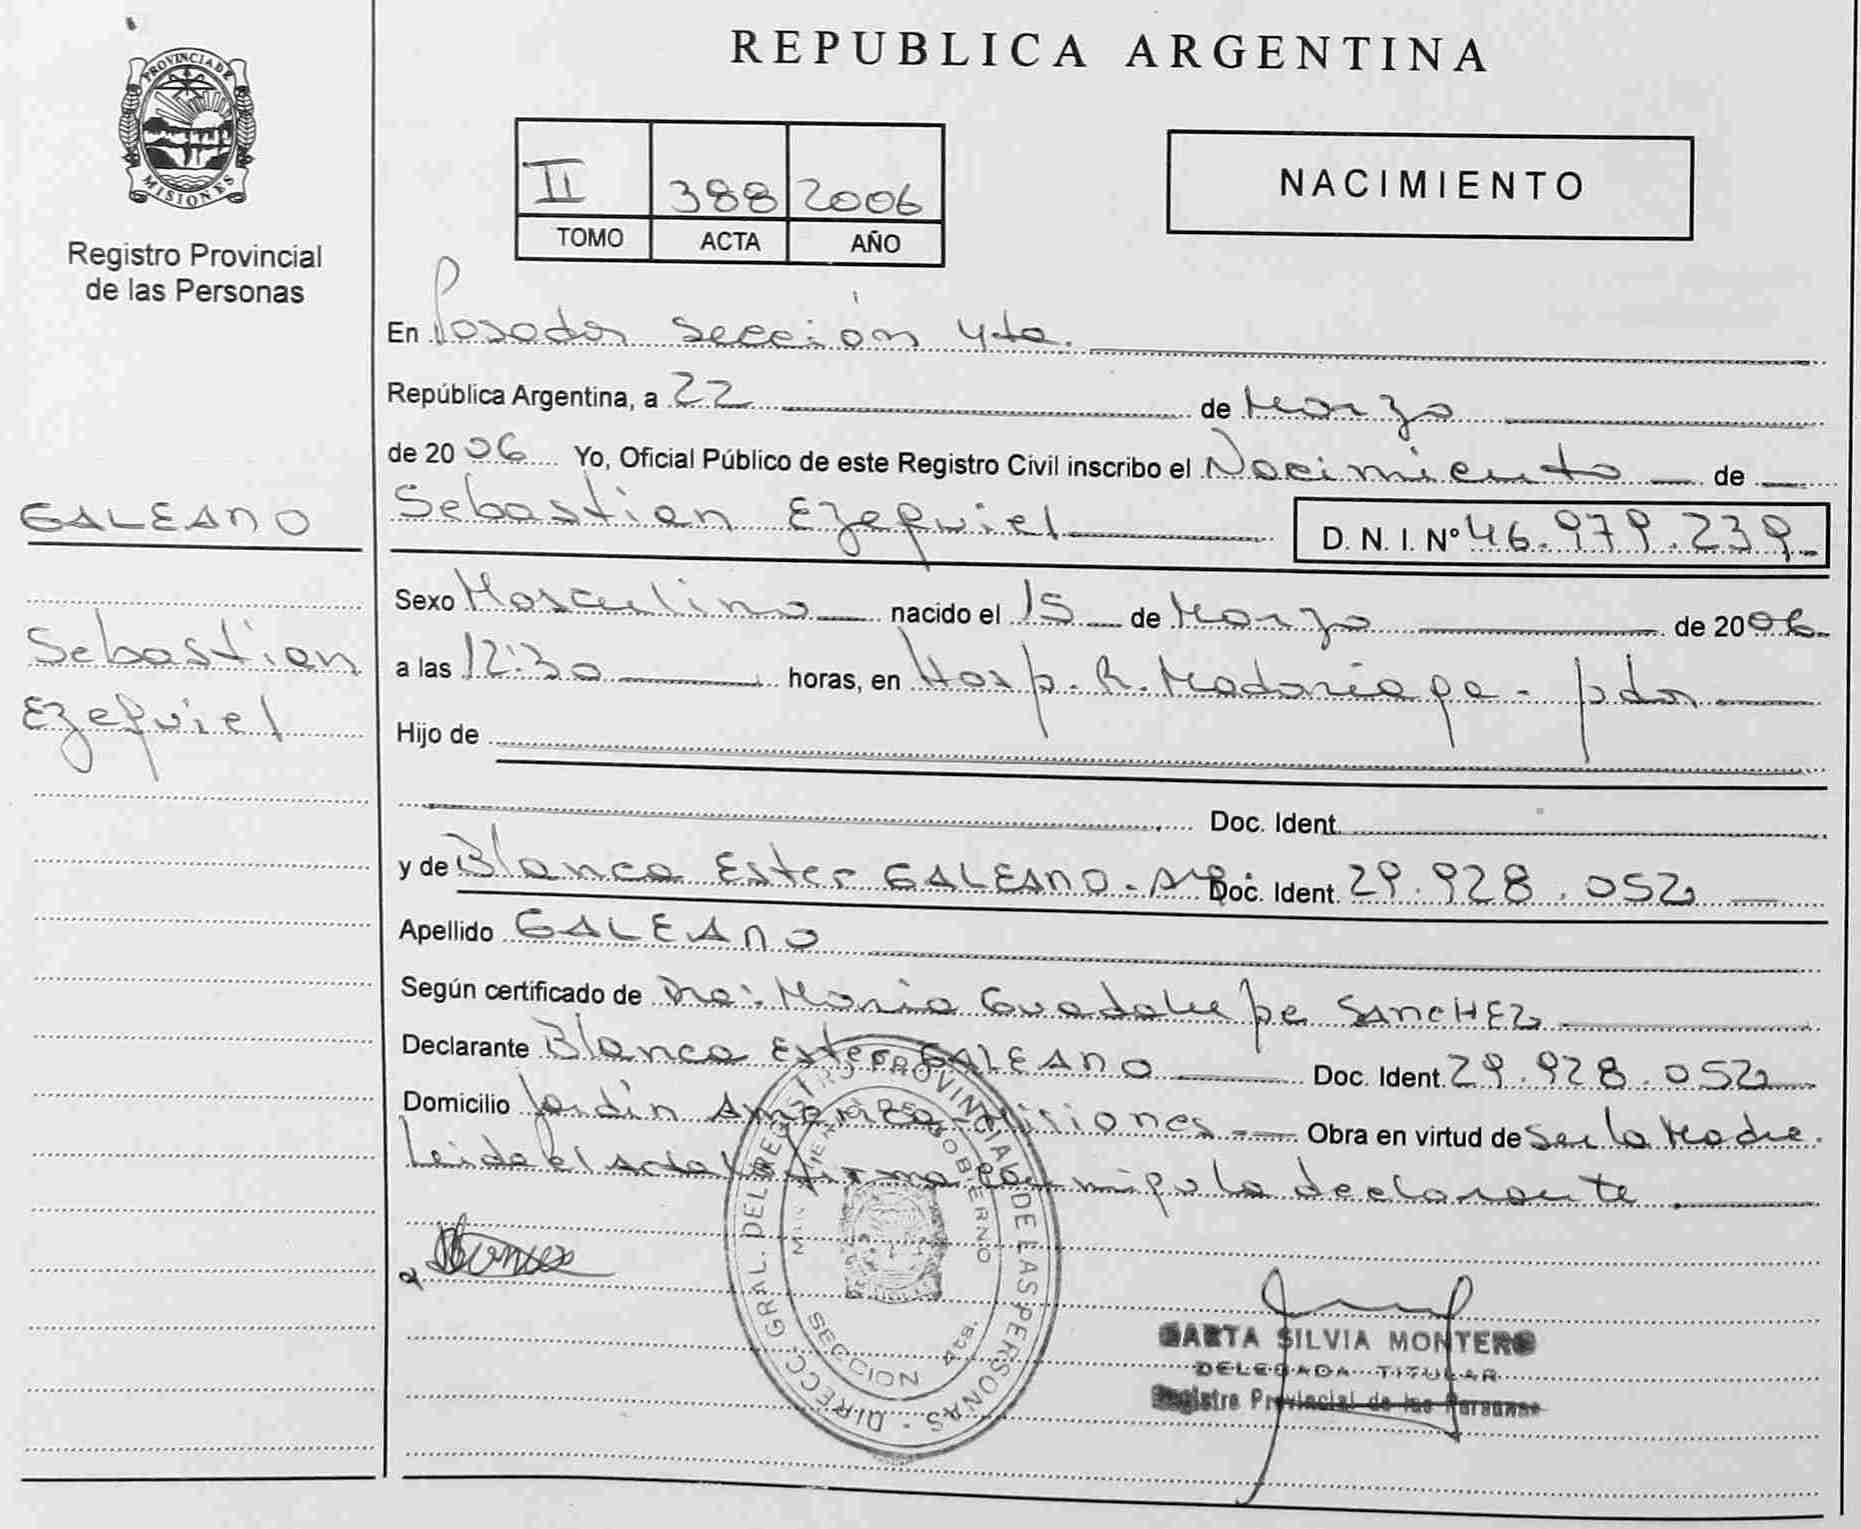 PROVINCIA DE
MISIONES
Registro Provincial
de las Personas
GALEANO
Sebastian
Ezequiel
REPUBLICA ARGENTINA
II 388 2006
TOMO ACTA AÑO
NACIMIENTO
En Posadas sección 4ta.
República Argentina, a 22 de Marzo
de 2006 Yo, Oficial Público de este Registro Civil inscribo el Nacimiento de
Sebastian Ezequiel D. N. I. Nº 46.979.239
Sexo Masculino nacido el 15 de Marzo de 2006
a las 12:30 horas, en Hosp. R. Madariaga - pdas
Hijo de
Doc. Ident.
y de Blanca Ester GALEANO - Arg. Doc. Ident. 29.928.052
Apellido GALEANO
Según certificado de Dra: Maria Guadalupe SANCHEZ
Declarante Blanca Ester GALEANO Doc. Ident. 29.928.052
Domicilio Jardín America - Misiones Obra en virtud de Ser la Madre.
Leida el acta la firma conmigo la declarante
DIRECC. GRAL. DEL REGISTRO PROVINCIAL DE LAS PERSONAS
MINISTERIO DE GOBIERNO
SECCION 4ta.
Blanca
SILVIA MONTERO
DELEGADA TITULAR
Registro Provincial de las Personas